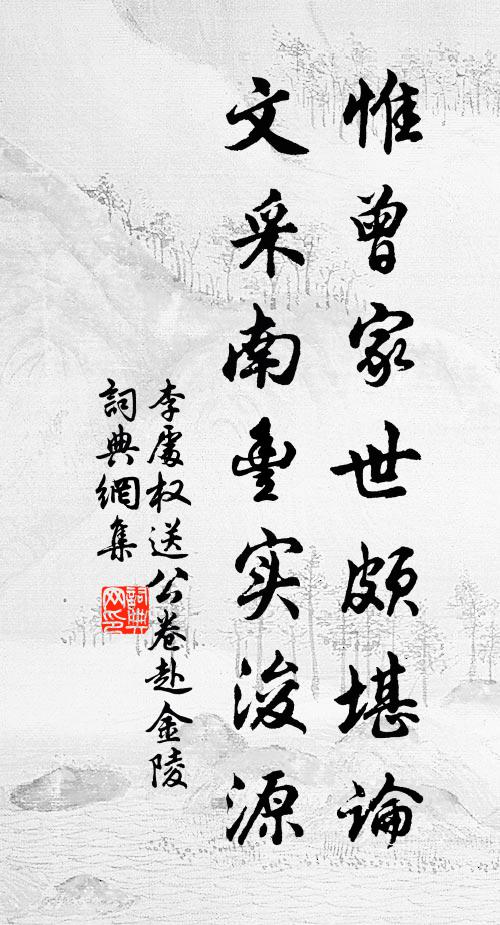 惟曾家世頗堪論
文采南豐实浚源
李處权送公卷赴金陵
詞典網集
詞典网印